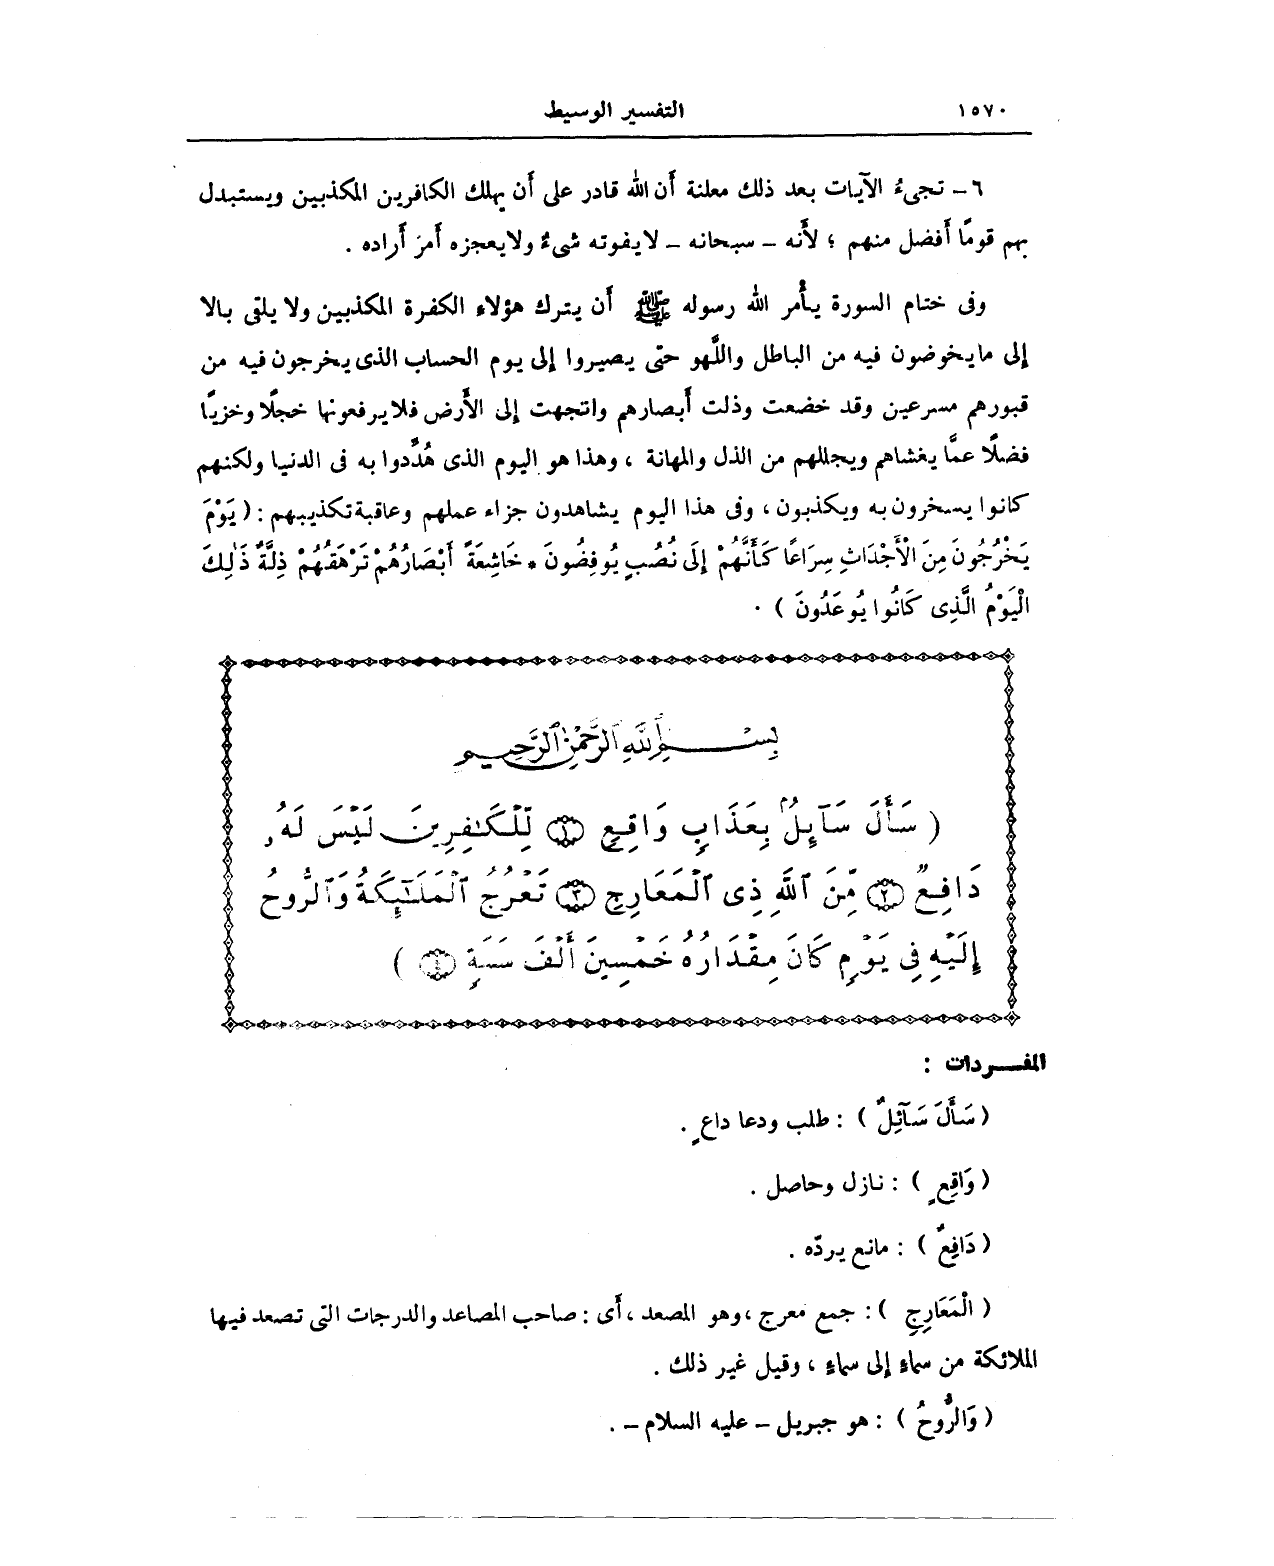 ١٥٧٠ التفسير الوسيط
٦ - تجيءُ الآيات بعد ذلك معلنة أن الله قادر على أن يهلك الكافرين المكذبين ويستبدل
بهم قومًا أفضل منهم ؛ لأنه - سبحانه - لا يفوته شيءٌ ولا يعجزه أمرٌ أراده .
وفى ختام السورة يأمر الله رسوله ﷺ أن يترك هؤلاء الكفرة المكذبين ولا يلقى بالا
إلى ما يخوضون فيه من الباطل واللَّهو حتى يصيروا إلى يوم الحساب الذى يخرجون فيه من
قبورهم مسرعين وقد خضعت وذلت أبصارهم واتجهت إلى الأرض فلا يرفعونها خجلًا وخزيًا
فضلًا عمَّا يغشاهم ويجللهم من الذل والمهانة ، وهذا هو اليوم الذى هُدِّدوا به فى الدنيا ولكنهم
كانوا يسخرون به ويكذبون ، وفى هذا اليوم يشاهدون جزاء عملهم وعاقبة تكذيبهم : ( يَوْمَ
يَخْرُجُونَ مِنَ الْأَجْدَاثِ سِرَاعًا كَأَنَّهُمْ إِلَى نُصُبٍ يُوفِضُونَ * خَاشِعَةً أَبْصَارُهُمْ تَرْهَقُهُمْ ذِلَّةٌ ذَٰلِكَ
الْيَوْمُ الَّذِى كَانُوا يُوعَدُونَ ) .
بِسْمِ ٱللَّهِ ٱلرَّحْمَٰنِ ٱلرَّحِيمِ
( سَأَلَ سَآئِلٌۢ بِعَذَابٍ وَاقِعٍ ١ لِّلْكَٰفِرِينَ لَيْسَ لَهُۥ
دَافِعٌ ٢ مِّنَ ٱللَّهِ ذِى ٱلْمَعَارِجِ ٣ تَعْرُجُ ٱلْمَلَٰٓئِكَةُ وَٱلرُّوحُ
إِلَيْهِ فِى يَوْمٍ كَانَ مِقْدَارُهُۥ خَمْسِينَ أَلْفَ سَنَةٍ ٤ )
المفـــردات :
( سَأَلَ سَآئِلٌ ) : طلب ودعا داعٍ .
( وَاقِعٍ ) : نازل وحاصل .
( دَافِعٌ ) : مانع يردّه .
( الْمَعَارِجِ ) : جمع معرج ، وهو المصعد ، أى : صاحب المصاعد والدرجات التى تصعد فيها
الملائكة من سماءٍ إلى سماءٍ ، وقيل غير ذلك .
( وَالرُّوحُ ) : هو جبريل - عليه السلام - .